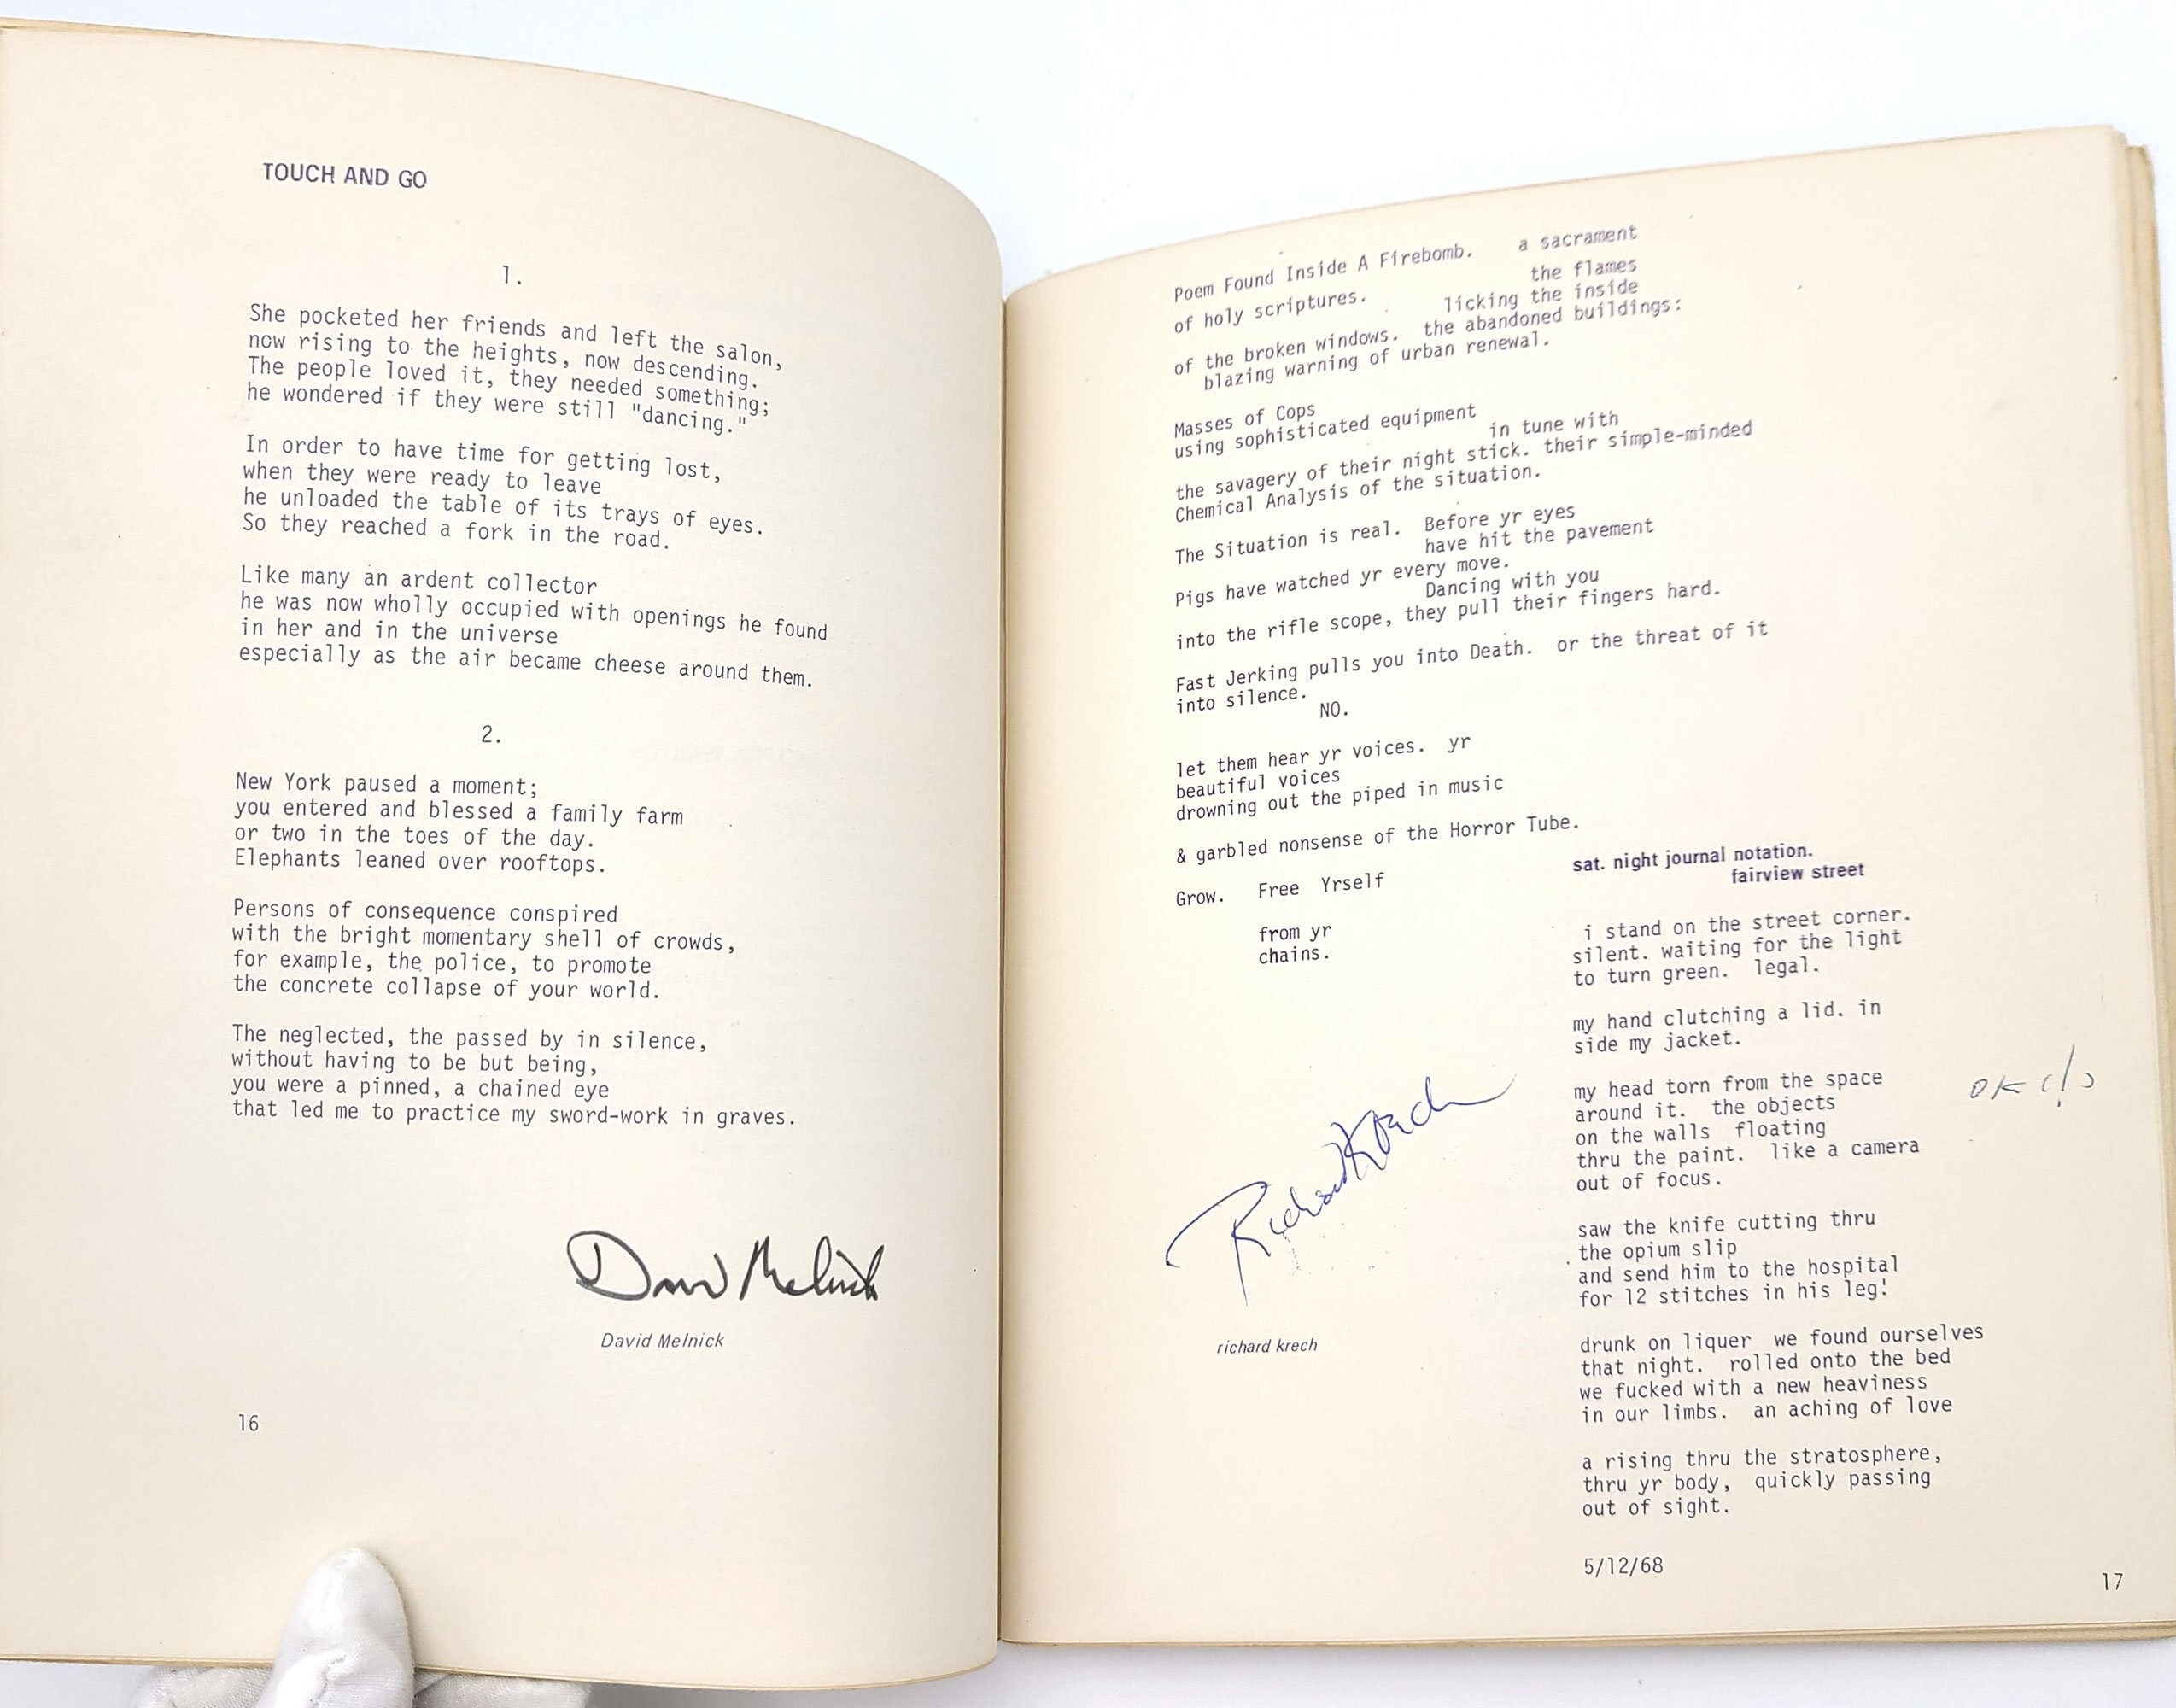 TOUCH AND GO
1.
She pocketed her friends and left the salon,
now rising to the heights, now descending.
The people loved it, they needed something;
he wondered if they were still "dancing."
In order to have time for getting lost,
when they were ready to leave
he unloaded the table of its trays of eyes.
So they reached a fork in the road.
Like many an ardent collector
he was now wholly occupied with openings he found
in her and in the universe
especially as the air became cheese around them.
2.
New York paused a moment;
you entered and blessed a family farm
or two in the toes of the day.
Elephants leaned over rooftops.
Persons of consequence conspired
with the bright momentary shell of crowds,
for example, the police, to promote
the concrete collapse of your world.
The neglected, the passed by in silence,
without having to be but being,
you were a pinned, a chained eye
that led me to practice my sword-work in graves.
David Melnick
David Melnick
16
Poem Found Inside A Firebomb. a sacrament
of holy scriptures. the flames
licking the inside
of the broken windows. the abandoned buildings:
blazing warning of urban renewal.
Masses of Cops
using sophisticated equipment
in tune with
the savagery of their night stick. their simple-minded
Chemical Analysis of the situation.
The Situation is real. Before yr eyes
have hit the pavement
Pigs have watched yr every move.
Dancing with you
into the rifle scope, they pull their fingers hard.
Fast Jerking pulls you into Death. or the threat of it
into silence.
NO.
let them hear yr voices. yr
beautiful voices
drowning out the piped in music
& garbled nonsense of the Horror Tube.
Grow. Free Yrself
from yr
chains.
Richard Krech
richard krech
sat. night journal notation.
fairview street
i stand on the street corner.
silent. waiting for the light
to turn green. legal.
my hand clutching a lid. in
side my jacket.
my head torn from the space
around it. the objects
on the walls floating
thru the paint. like a camera
out of focus.
OK (!)
saw the knife cutting thru
the opium slip
and send him to the hospital
for 12 stitches in his leg!
drunk on liquer we found ourselves
that night. rolled onto the bed
we fucked with a new heaviness
in our limbs. an aching of love
a rising thru the stratosphere,
thru yr body, quickly passing
out of sight.
5/12/68
17